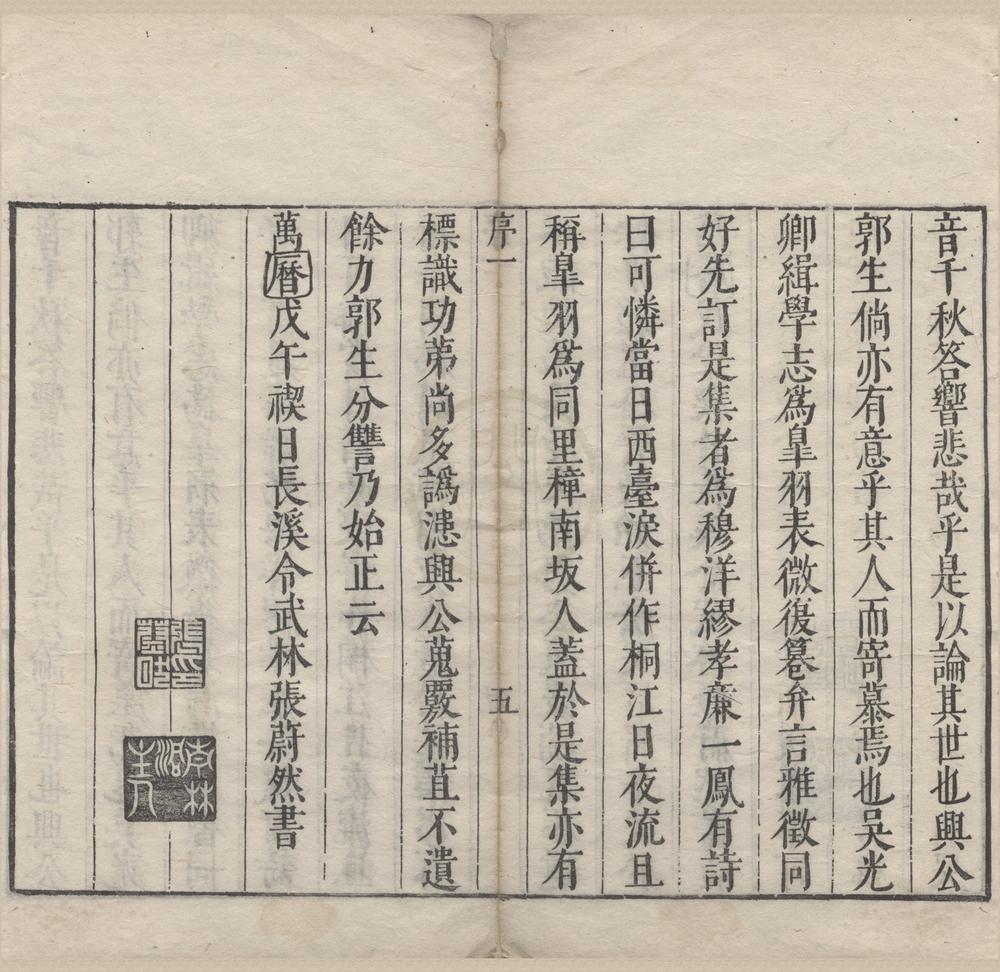 音千秋答響悲哉乎是以論其世也興公
郭生倘亦有意乎其人而寄慕焉也吳光
卿緝學志為臯羽表微復簒弁言雅徵同
好先訂是集者為穆洋繆孝廉一鳳有詩
曰可憐當日西臺淚併作桐江日夜流且
稱臯羽為同里樟南坂人蓋於是集亦有
序一
五
標識功苐尚多譌漶興公蒐覈補苴不遺
餘力郭生分讐乃始正云
萬曆戊午禊日長溪令武林張蔚然書
張蔚然印